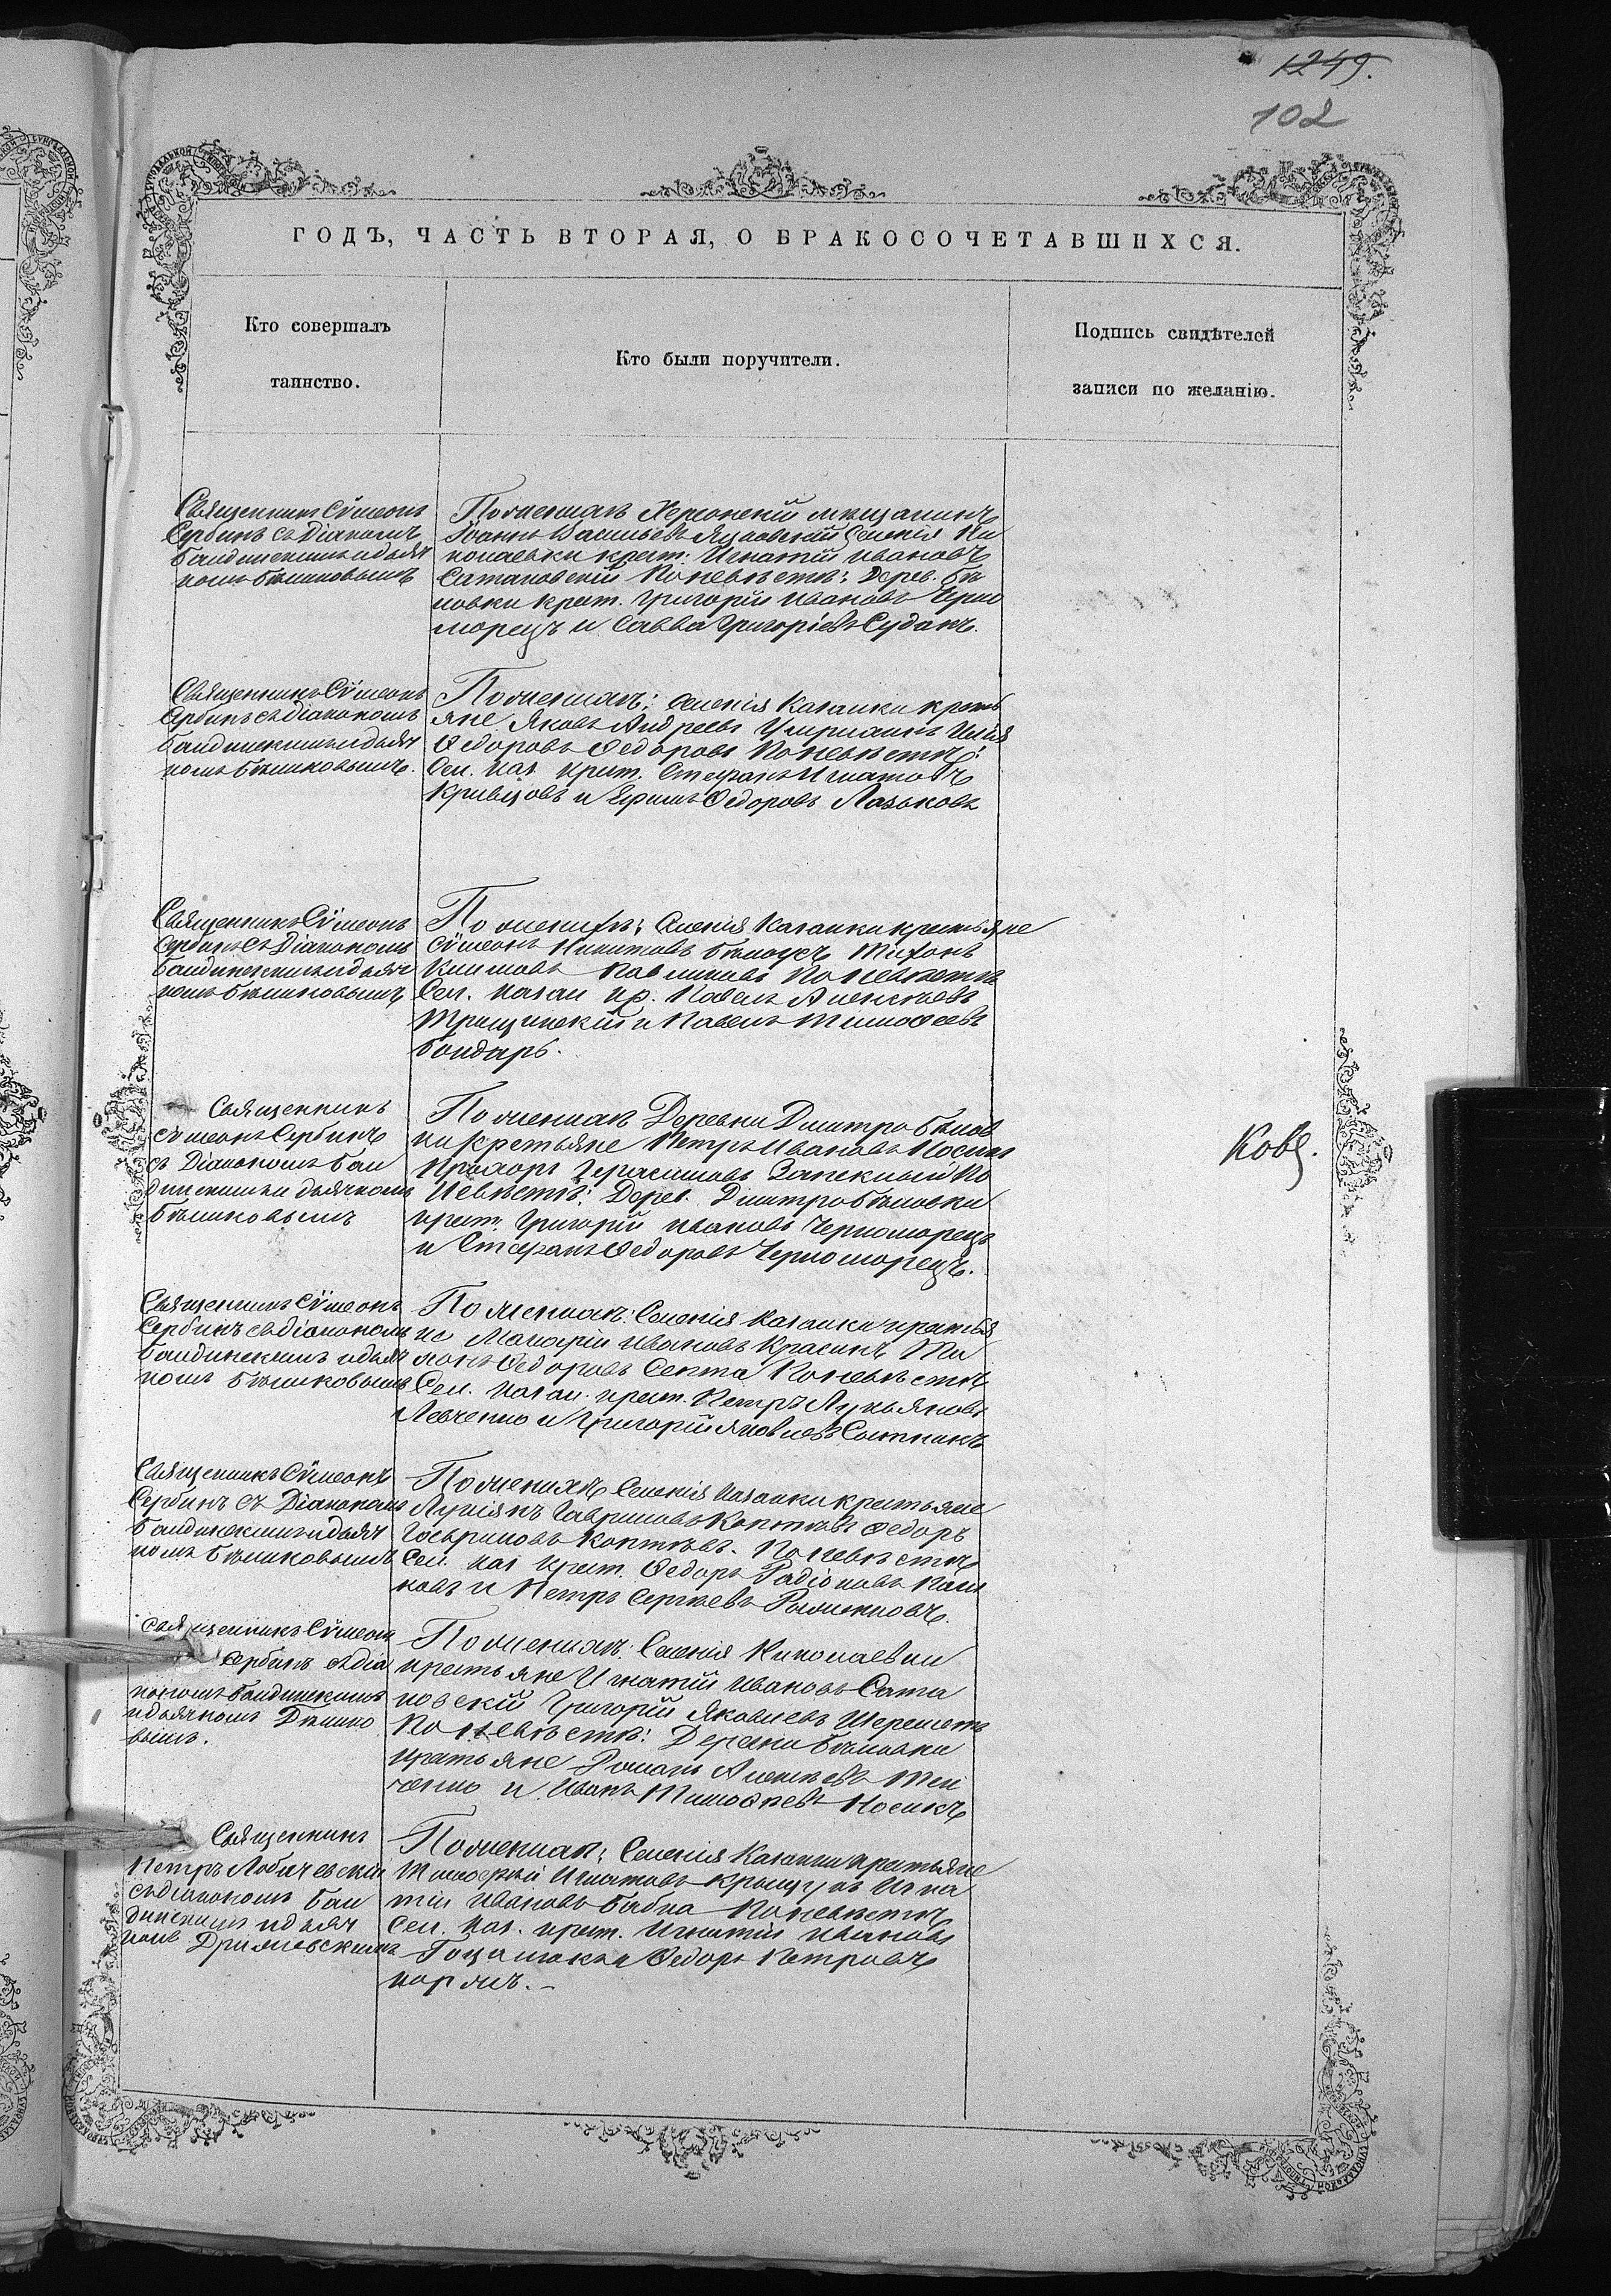 1249.
102
ГОДЪ, ЧАСТЬ ВТОРАЯ, О БРАКОСОЧЕТАВШИХСЯ.
Кто совершалъ
таинство.
Кто были поручители.
Подпись свидѣтелей
записи по желанію.
Священникъ Сѵмеонъ
Сербинъ съ Діакономъ
и дьяч
комъ Бѣликовымъ
По женихѣ Херсонскій мѣщанинъ
Іоаннъ Васильевъ Селенія Ни
колаевки крест. Игнатій Ивановъ
Сатановскій По невѣстѣ: Дерев. Бѣ
ловки крест. Григорій Ивановъ Черно
морецъ и Савва Григоріевъ Судакъ.
Священникъ Сѵмеонъ
Сербинъ съ діакономъ
и дьяч
комъ Бѣликовымъ.
По женихѣ: Селенія Казанки кресть
яне Яковъ Андреевъ Илія
Ѳедоровъ Ѳедоровъ По невѣстѣ:
Сел. Каз крест. Стефанъ Игнатовъ
Кривцовъ и Ефимъ Ѳедоровъ Лазьковъ
Священникъ Сѵмеонъ
Сербинъ съ Діакономъ
и дьяч
комъ Бѣликовымъ
По женихѣ: Селенія Казанки крестьяне
Сѵмеонъ Никитовъ Бѣлоусъ Тихонъ
Климовъ Павликовъ По невѣстѣ
Сел. Казан кр. Павелъ Алексѣевъ
Трищинскій и Павелъ Тимоѳеевъ
Бондарь.
Священникъ
Сѵмеонъ Сербинъ
съ Діакономъ Бал
динскимъ и дьячкомъ
Бѣликовымъ
По женихѣ Деревни Дмитро Бѣлов
ки крестьяне Петръ Ивановъ Носикъ
Прохоръ Герасимовъ По
невѣстѣ: Дерев. Дмитробѣловки
крест. Григорій Ивановъ Черноморецъ
и Стефанъ Ѳедоровъ Черноморецъ.
Священникъ Сѵмеонъ
Сербинъ съ діакономъ
и дьяч
комъ Бѣликовымъ
По женихѣ: Селенія Казанки крестья
не Макарій Ивановъ Красикъ
Ѳедоровъ Септа По невѣстѣ
Сел. Казан. крест. Петръ Лукьяновъ
Левченко и Григорій Яковлевъ Сытникъ
Священникъ Сѵмеонъ
Сербинъ съ Діакономъ
и дьяч
комъ Бѣликовымъ
По женихѣ Селенія Казанки крестьяне
Лукіанъ Гавриловъ Коптѣвъ Ѳедоръ
Гавриловъ Коптѣвъ. По невѣстѣ
Сел. Каз крест. Ѳедоръ Радіоновъ
и Петръ Сергѣевъ
Священникъ Сѵмеонъ
Сербинъ съ діа
кономъ Балдинскимъ
и дьячкомъ Бѣлико
вымъ.
По женихѣ: Селенія Николаевки
крестьяне Игнатій Ивановъ Сата
новскій Григорій Яковлевъ Шереметъ
По невѣстѣ: Деревни Бѣловки
крестьяне Романъ Алексѣевъ
и Иванъ Тимоѳеевъ Носикъ
Священникъ
Петръ Лобачевскій
съ діакономъ Бал
динскимъ и дьяч
комъ
По женихѣ: Селенія Казанки крестьяне
Тимоѳей Игнатовъ Игна
тій Ивановъ Бабка По невѣстѣ
Сел. Каз. крест. Игнатій Ивановъ
и Ѳедоръ Петровъ